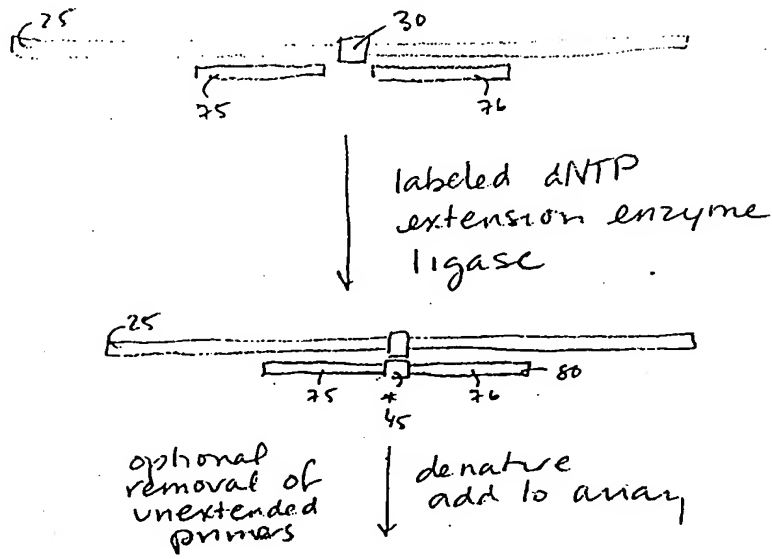 25
30
75
76
labeled dNTP
extension enzyme
ligase
25
75
*
45
76
80
optional
removal of
unextended
primers
denature
add to array